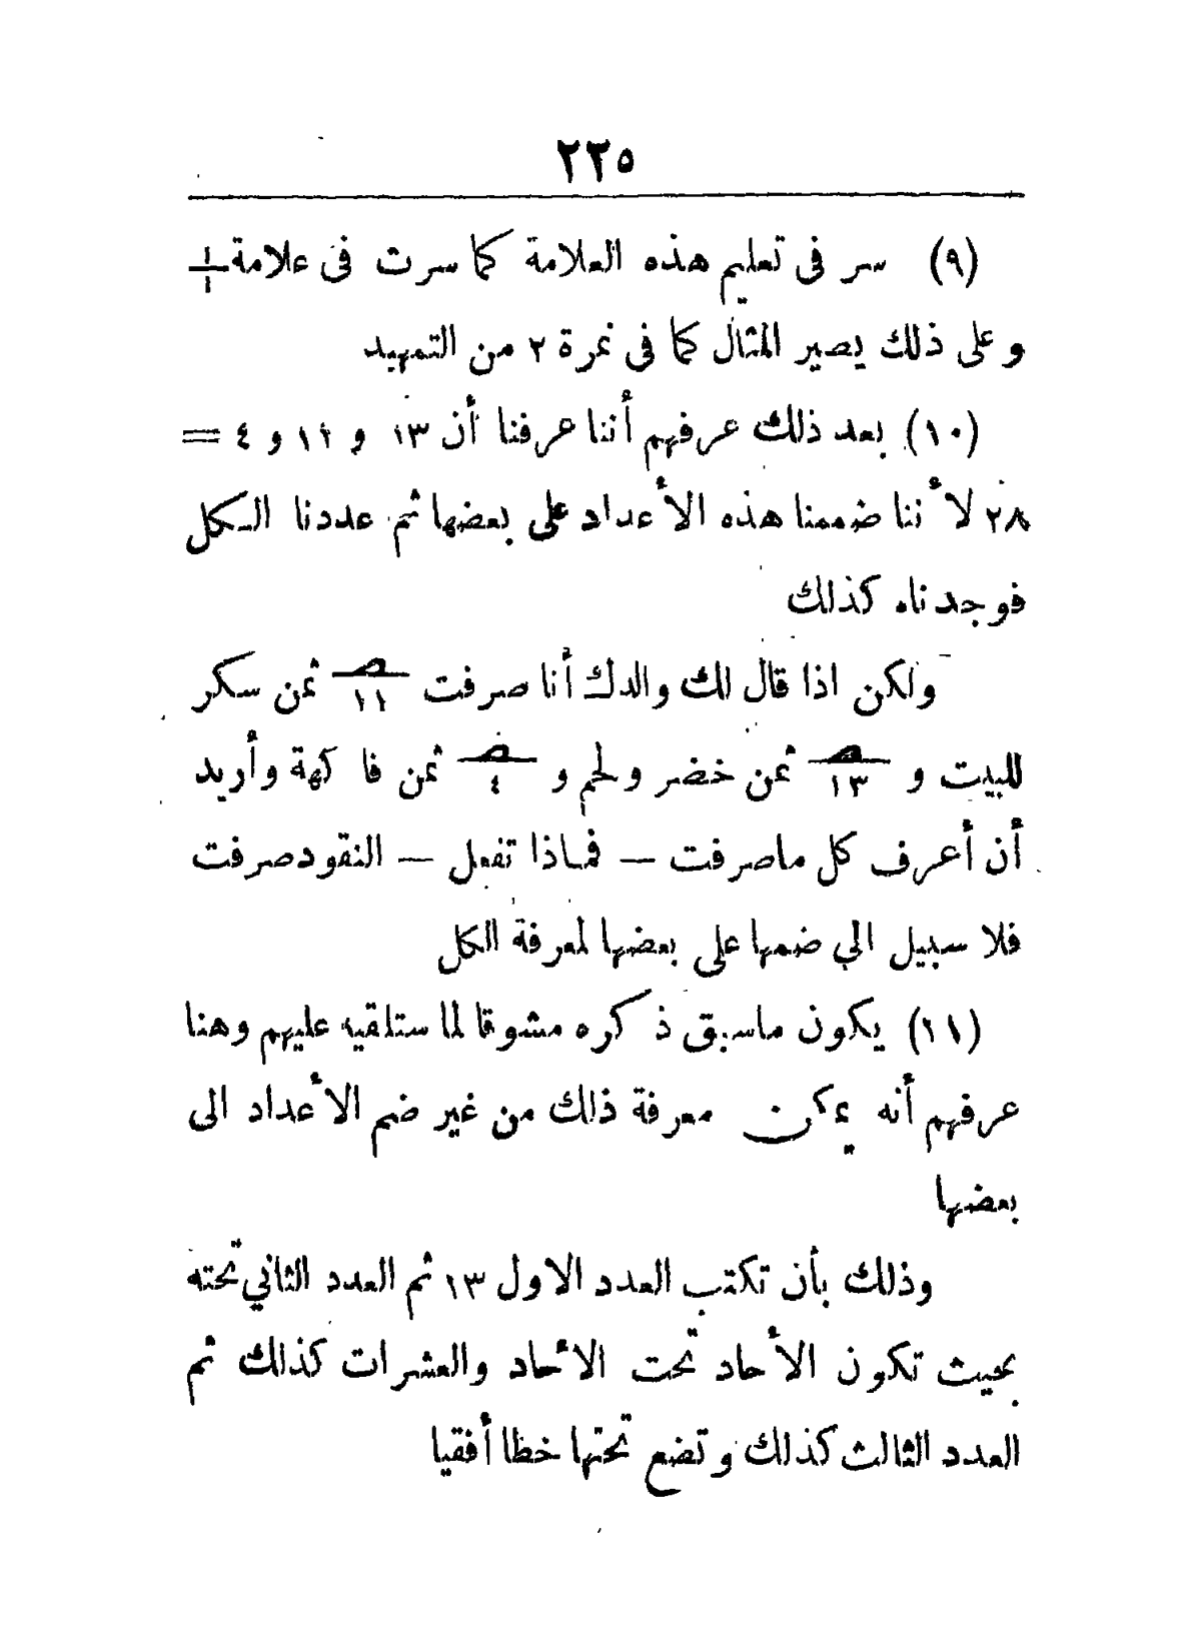 ٢٢٥
(٩) سر فى تعليم هذه العلامة كما سرت فى علامة +
وعلى ذلك يصير المثال كما فى نمرة ٢ من التمهيد
(١٠) بعد ذلك عرفهم أننا عرفنا أن ١٣ و ١١ و ٤ =
٢٨ لأننا ضممنا هذه الأعداد على بعضها ثم عددنا الكل
فوجدناه كذلك
ولكن اذا قال لك والدك أنا صرفت ١١ ثمن سكر
للبيت و ١٣ ثمن خضر ولحم و ٤ ثمن فاكهة وأريد
أن أعرف كل ماصرفت — فماذا تفعل — النقود صرفت
فلا سبيل الي ضمها على بعضها لمعرفة الكل
(١١) يكون ماسبق ذكره مشوقا لما ستلقيه عليهم وهنا
عرفهم أنه يمكن معرفة ذلك من غير ضم الأعداد الى
بعضها
وذلك بأن تكتب العدد الاول ١٣ ثم العدد الثاني تحته
بحيث تكون الأحاد تحت الأحاد والعشرات كذلك ثم
العدد الثالث كذلك وتضع تحتها خطا أفقيا